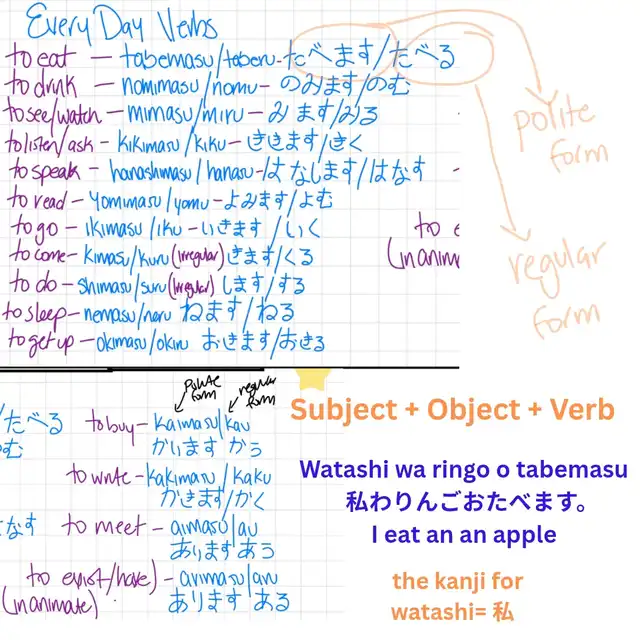 Every Day Verbs
to eat — tabemasu/taberu - たべます/たべる
to drink — nomimasu/nomu - のみます/のむ
to see/watch — mimasu/miru - みます/みる
to listen/ask - kikimasu/kiku - ききます/きく
to speak - hanashimasu/hanasu - はなします/はなす
to read - yomimasu/yomu - よみます/よむ
to go - ikimasu/iku - いきます/いく
to come - kimasu/kuru (irregular) きます/くる
to do - shimasu/suru (irregular) します/する
to sleep - nemasu/neru ねます/ねる
to get up - okimasu/okiru おきます/おきる
polite
form
regular
form
to e
(inanim
polite
form
regular
form
たべる
to buy - kaimasu/kau
む
かいます かう
to write - kakimasu/kaku
かきます/かく
なす
to meet - aimasu/au
あります あう
to exist/have) - arimasu/aru
(inanimate)
あります ある
Subject + Object + Verb
Watashi wa ringo o tabemasu
私わりんごおたべます。
I eat an an apple
the kanji for
watashi= 私